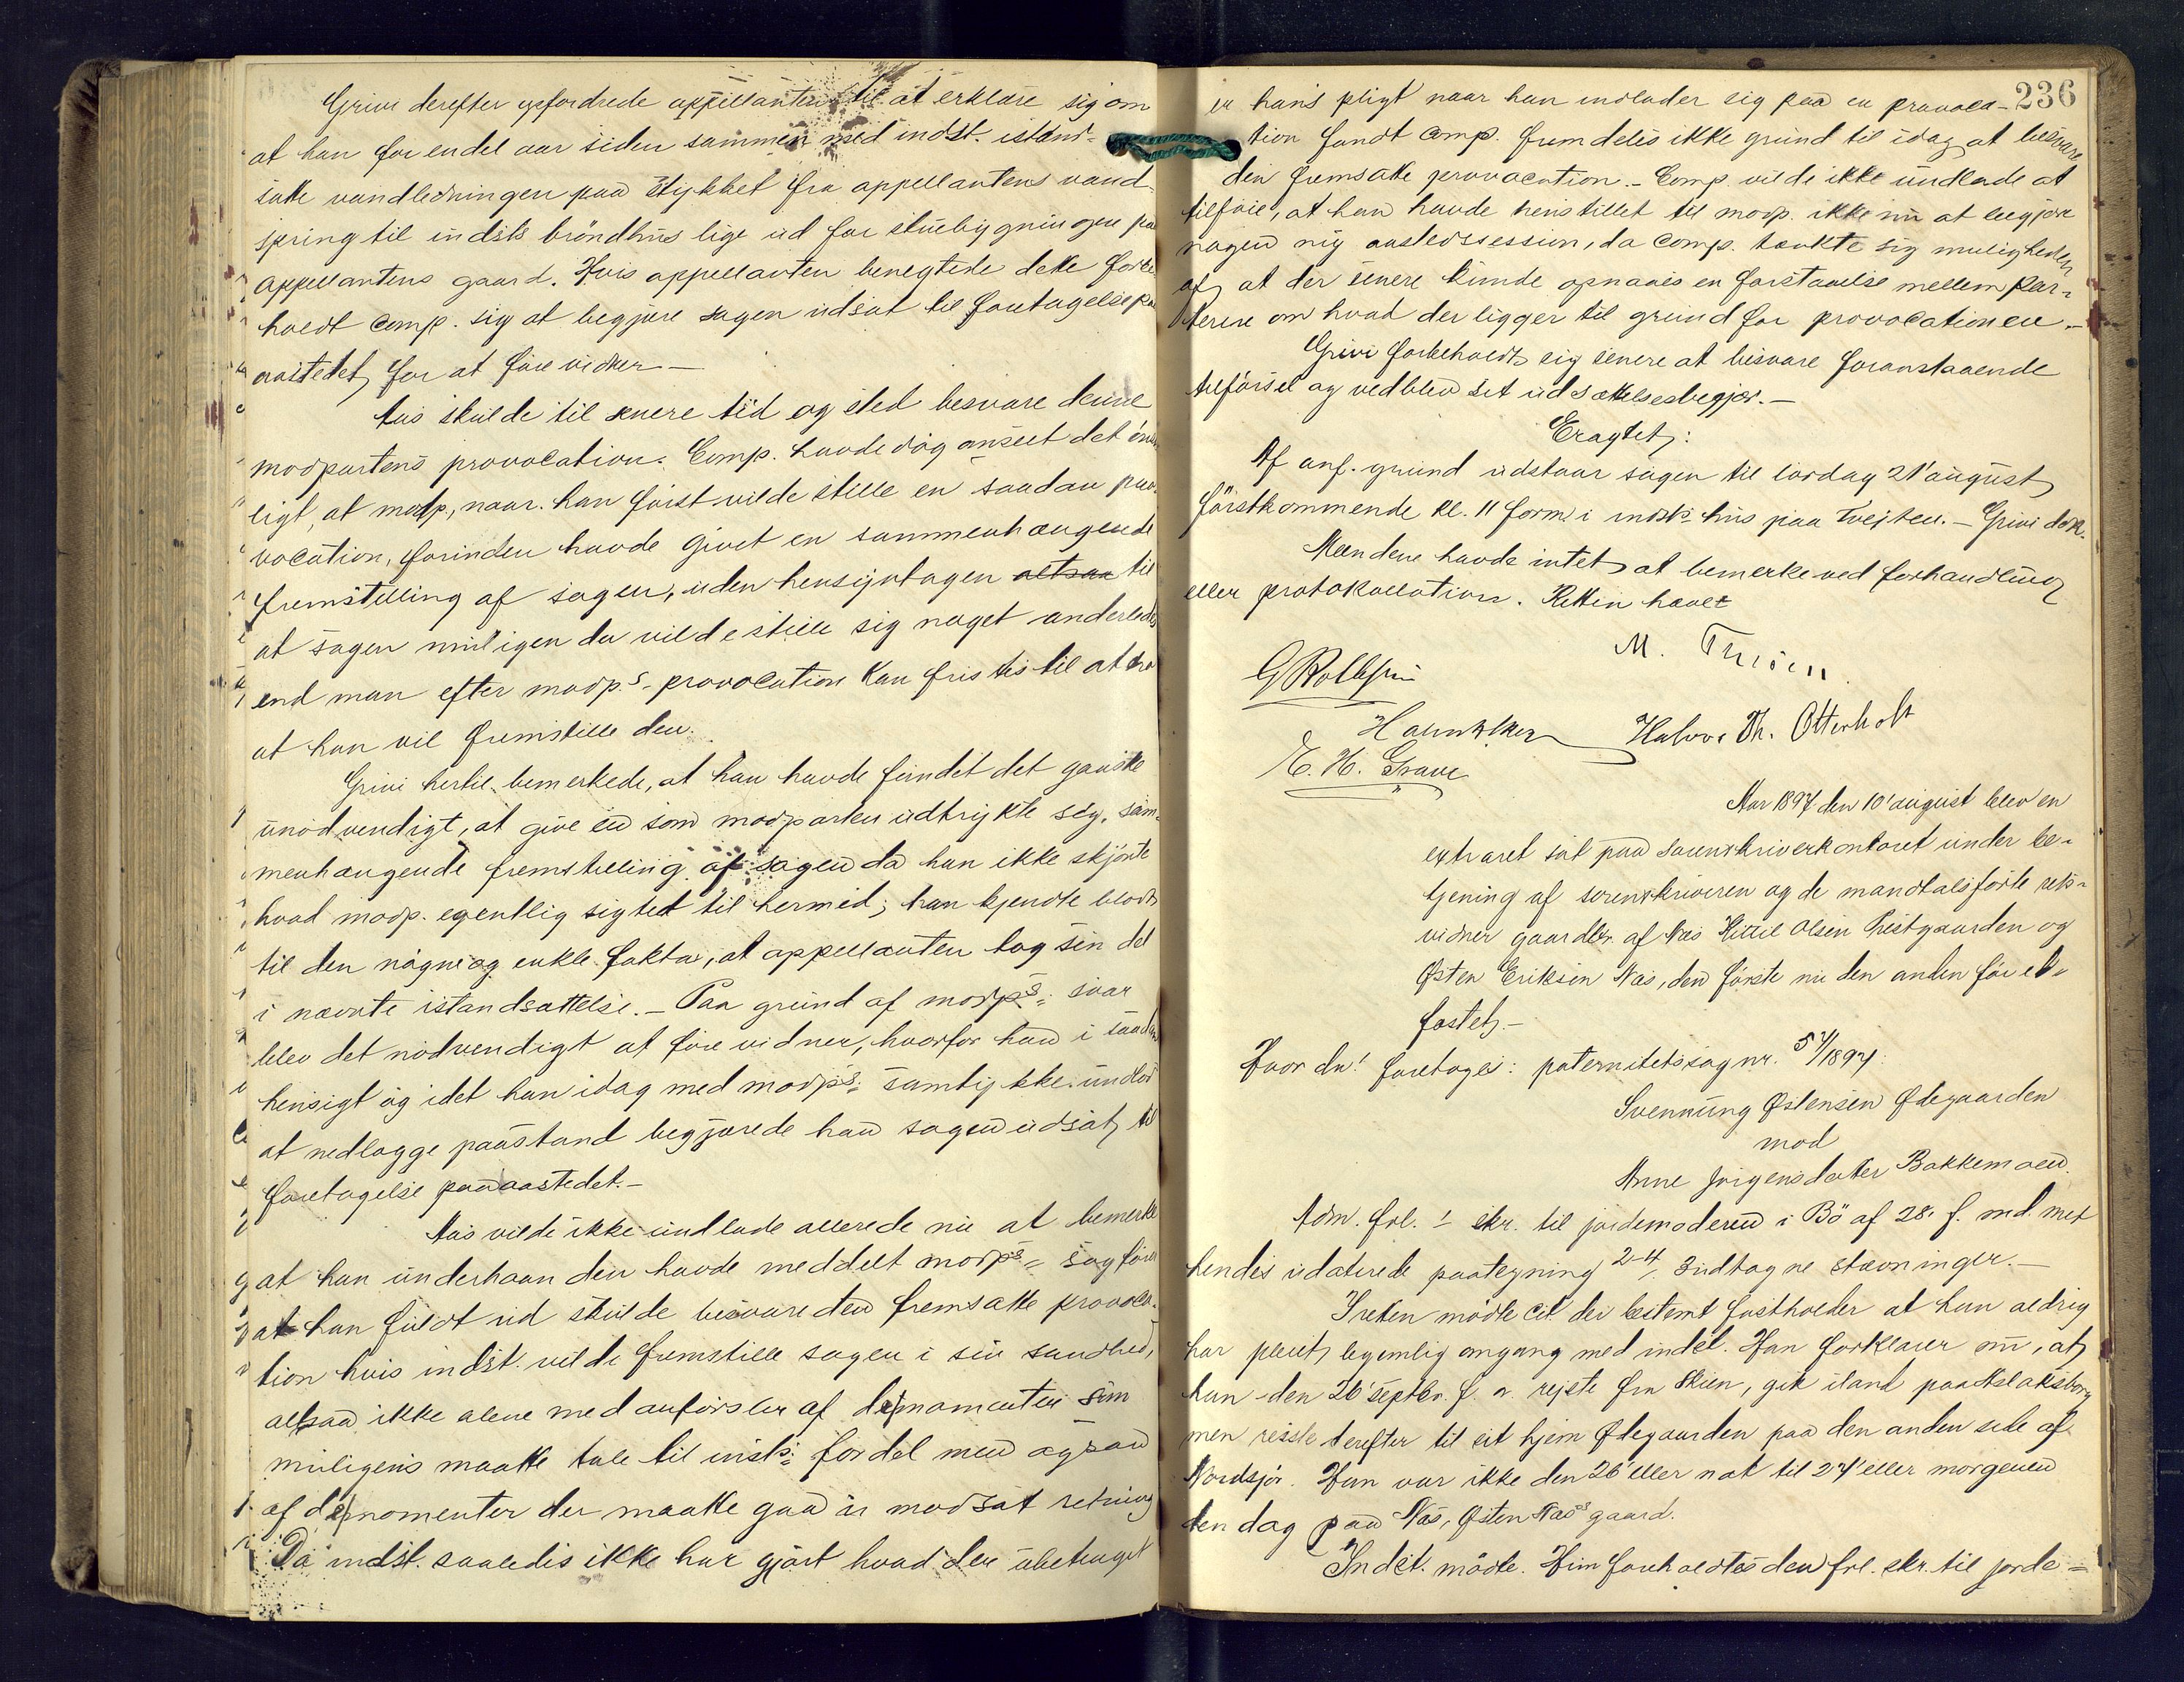 Grivi derefter opfordrede appellanten til at erklære sig om
at han for endel aar siden sammen med indst. istand-
satte vandledningen paa stykket fra appellantens vand-
spring til indsts brøndhus lige ud for stuebygningen paa
appellantens gaard. Hvis appellanten benegtede dette forbe-
holdt comp. sig at begjære sagen udsat til foretagelse paa
aastedet for at føre vidner. —
Aas skulde til senere tid og sted besvare denne
modpartens provocation. Comp. havde dog anseet det øns-
ligt, at modp., naar han først vilde stille en saadan pro-
vocation, forinden havde givet en sammenhængende
fremstilling af sagen, uden hensyntagen altsaa til
at sagen muligens da vilde stille sig noget anderledes
end man efter modp.s provocation kan fristes til at tro
at han vil fremstille den.
Grivi hertil bemerkede, at han havde fundet det ganske
unødvendigt, at give en som modparten udtrykte sig, sam-
menhængende fremstilling af sagen da han ikke skjønte
hvad modp. egentlig sigtet til hermed; han kjendte blodt
til den nøgne og enkle fakta, at appellanten tog sin del
i nævnte istandsættelse. — Paa grund af modp.s svar
blev det nødvendigt at føre vidner, hvorfor han i saadan
hensigt og idet han idag med modp.s samtykke undlod
at nedlægge paastand begjærede han sagen udsat til
foretagelse paa aastedet. —
Aas vilde ikke undlade allerede nu at bemerke
at han underhaanden havde meddelt modp.s sagfører
at han fuldt ud skulde besvare den fremsatte provoca-
tion hvis indst. vilde fremstille sagen i sin sandhed,
altsaa ikke alene med anførsler af de momenter som
muligens maatte tale til indst.s fordel men ogsaa
af de momenter der maatte gaa i modsat retning
Da indst. saaledes ikke har gjort hvad der ubetinget
236
er hans pligt naar han indlader sig paa en provoca-
tion fandt comp. fremdeles ikke grund til idag at besvare
den fremsatte provocation. — Comp. vilde ikke undlade at
tilføie, at han havde henstillet til modp. ikke nu at begjære
nogen ny aastedssession, da comp. tænkte sig muligheden
af, at der senere kunde opnaaes en forstaaelse mellem par-
terne om hvad der ligger til grund for provocationen. —
Grivi forbeholdt sig senere at besvare foranstaaende
tilførsel og vedblev sit udsættelsesbegjær. —
Eragtet:
Af anf. grund udstaar sagen til lørdag 21' august
førstkommende kl. 11 form. i indst.s hus paa Tvejten. —
Mændene havde intet at bemerke ved forhandling
eller protokollation. Retten hævet
M.
G Rolfsen
Halvor Th. Otterholt
E. H. Grave
Aar 1897 den 10' august blev en
extraret sat paa sorenskriverkontoret under be-
tjening af sorenskriveren og de mandtalsførte rets-
vidner gaardbr. af Næs Kittil Olsen Prestgaarden og
Østen Eriksen Næs, den første nu den anden før ed-
fæstet. —
Hvor da! foretoges: paternitetssag nr. 57/1897.
Svennung Østensen Ødegaarden
mod
Anne Jørgensdatter Bakkemoen.
Adm. frl. 1 skr. til jordemoderen i Bø af 28. f. md. med
hendes udaterede paategning 2-4, 3 udtagne stævninger. —
I retten mødte cit. der bestemt fastholder at han aldrig
har pleiet legemlig omgang med indcit. Han forklarer nu, at
han den 26' septbr. f. a. rejste fra Skien, gik iland paa
men reiste derefter til sit hjem Ødegaarden paa den anden side af
Nordsjø. Han var ikke den 26' eller nat til 27' eller morgenen
den dag paa Næs, Østen Næs's gaard.
Indcit. mødte. Hun foreholdtes den frl. skr. til jorde-